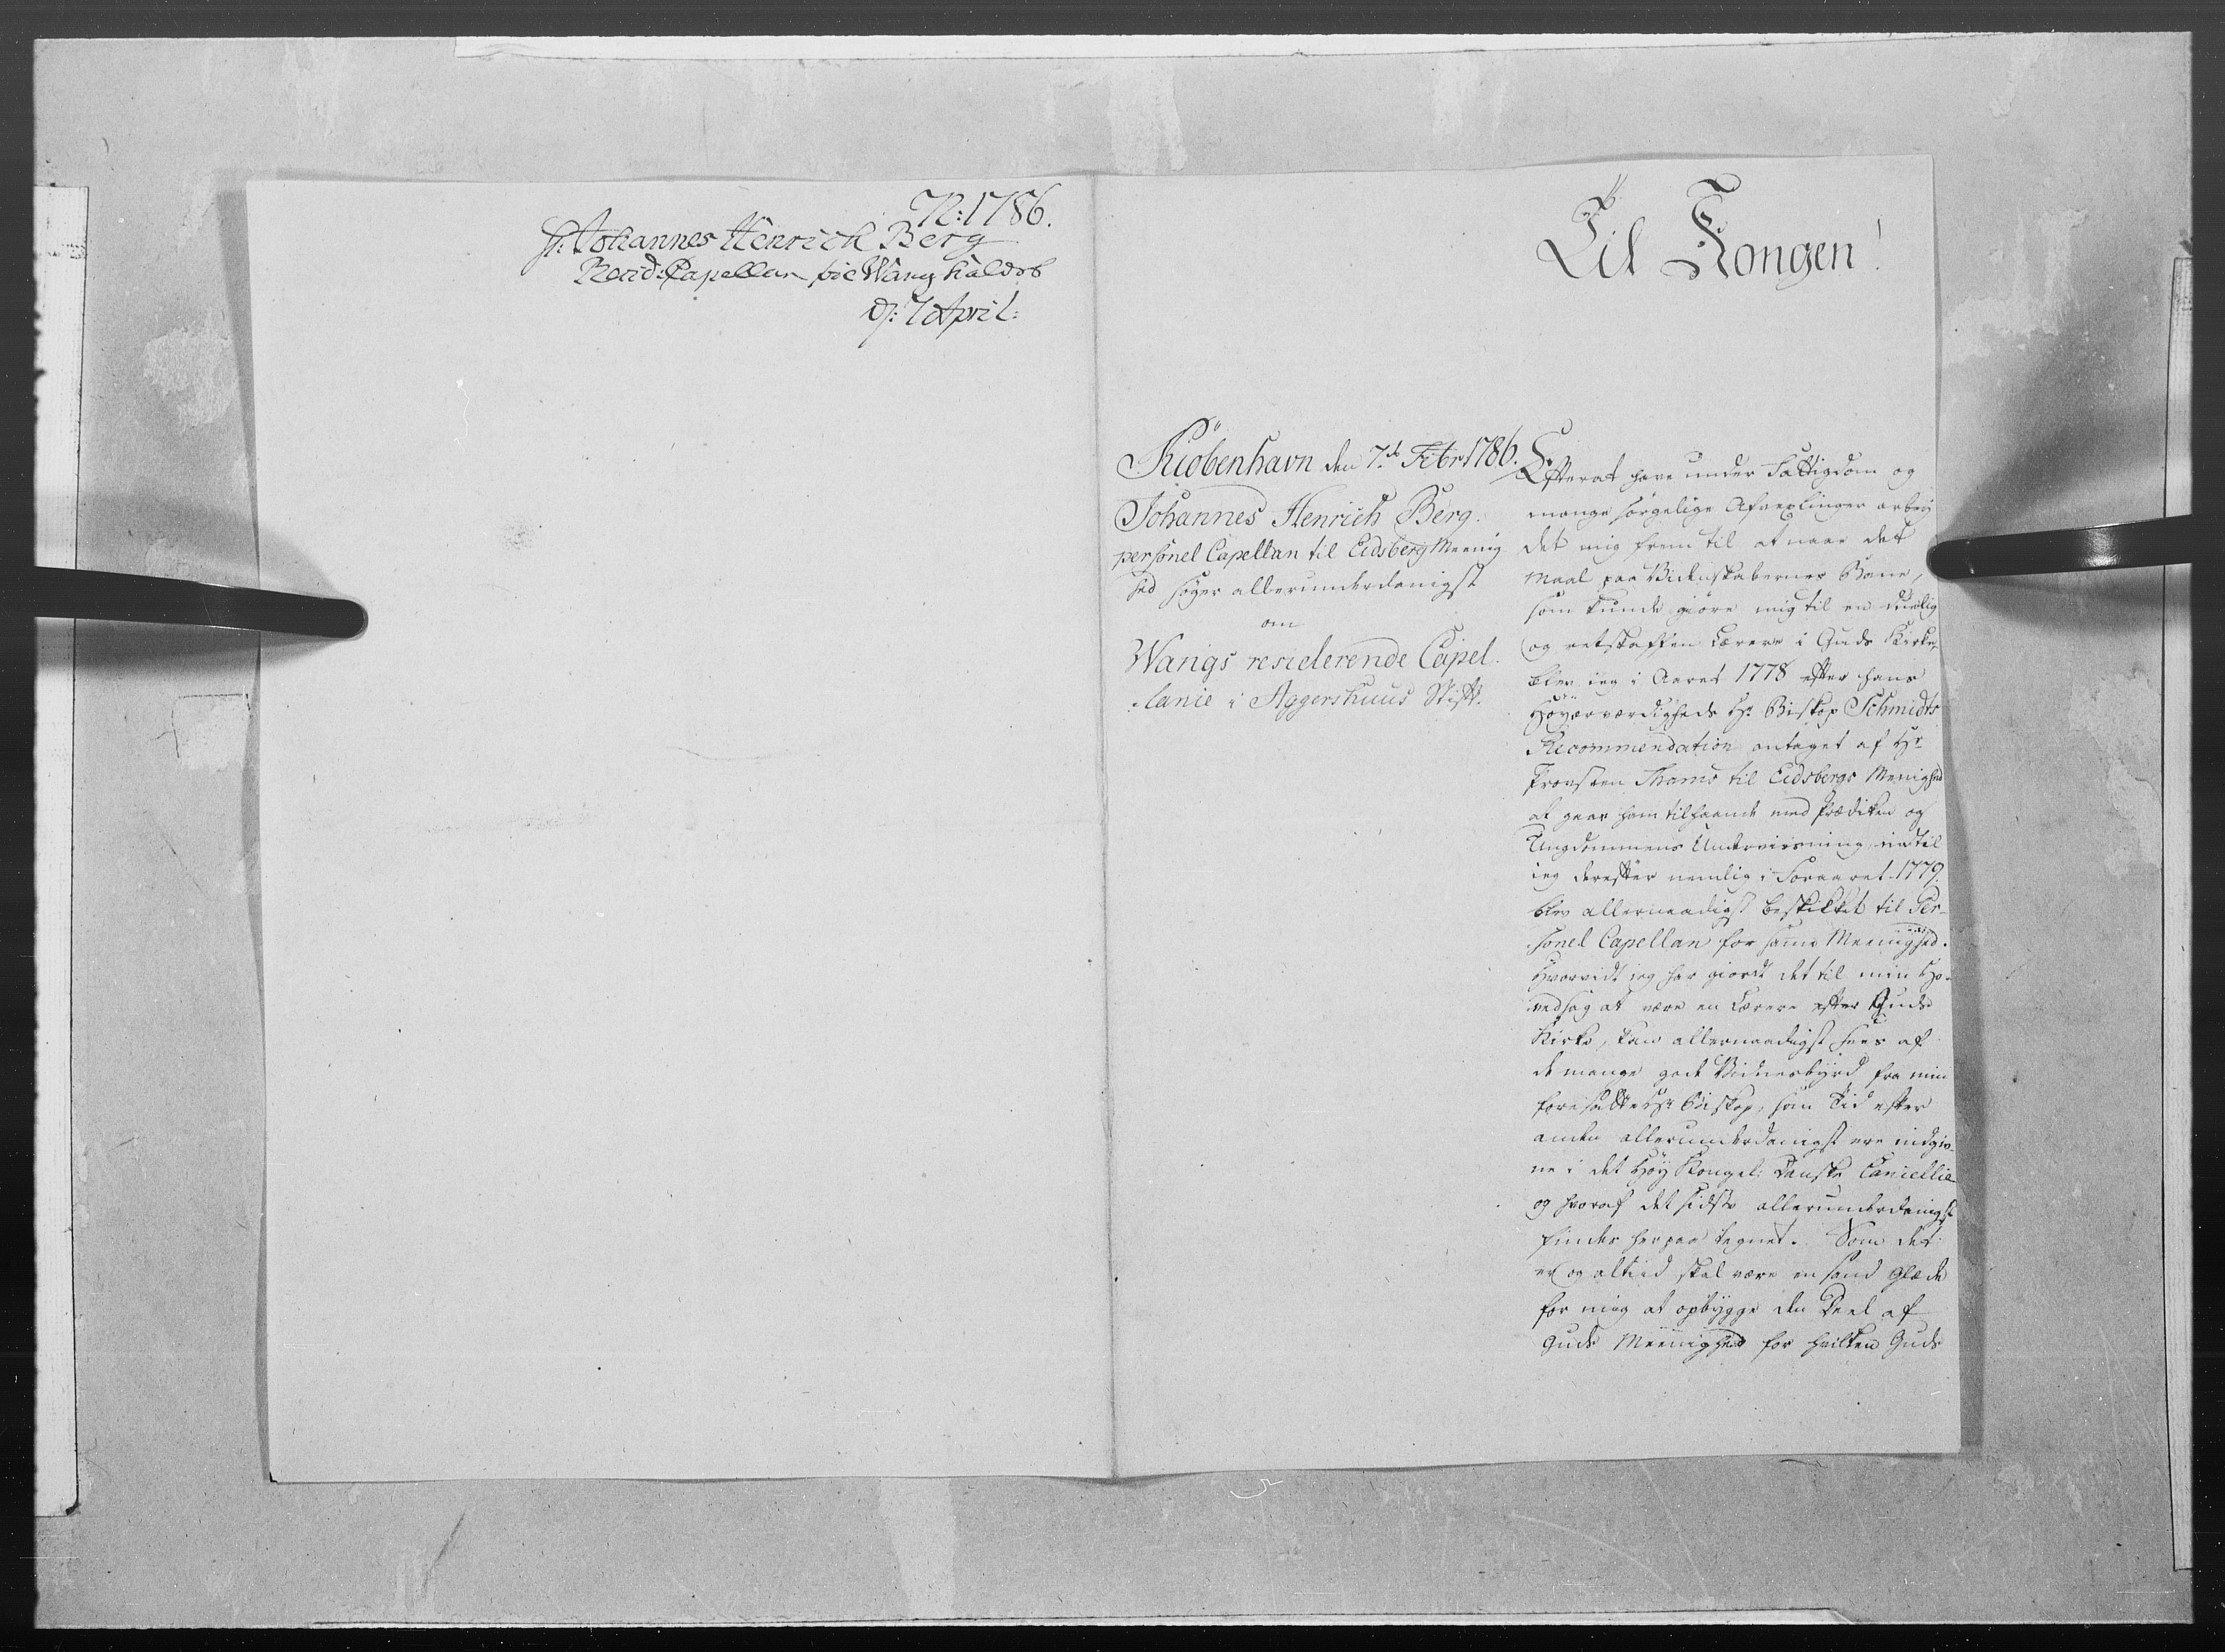 N: 1786.
Hr: Johannes Henrich Berg
Resid: Capellan til Wang Kaldet
d: 7 April:
Til Kongen!
Kiøbenhavn den 7de Febr 1786.
Johannes Henrich Berg.
personel Capellan til Eidsberg Meenig
hed søger allerunderdanigst
om
Wangs residerende Capel
-lanie i Aggershuus Stift.
Efterat have under Fattigdom og
mange sørgelige Afvexlinger arbey
det mig frem til at naae det
Maal paa Videnskabernes Bane,
som kunde giøre mig til en duelig
og retskaffen Lærere i Guds Kirke,
blev ieg i Aaret 1778 efter hans
Høyærværdigheds Hr Biskop Schmidts
Recommendation antaget af Hr
Provsten Thams til Eidsbergs Menighed
at gaae ham tilhaande med Prædiken og
Ungdommens Underviisning, indtil
ieg derefter nemlig i Foraaret 1779.
blev allernaadigst beskikket til Per-
sonel Capellan for samme Meenighed.
Hvorvidt ieg har giordt det til min Ho-
vedsag at være en Lærere efter Guds
Kirke, kan allernaadigst sees af
de mange gode Vidnesbyrd fra min
foresatte Hr Biskop, som Tid efter
anden allerunderdanigst ere indgiv-
ne i det Høy Kongel: Danske Cancellie
og hvoraf det sidste allerunderdanigst
findes herpaa tegnet. Som det
er og altiid skal være en sand Glæde
for mig at opbygge den Deel af
Guds Meenighed for hvilken Guds